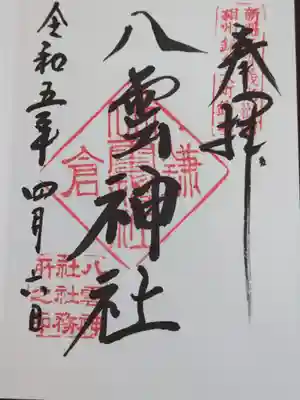 奉拝
八雲神社
鎌倉
令和五年 四月六日
八雲神
社社務
所之印